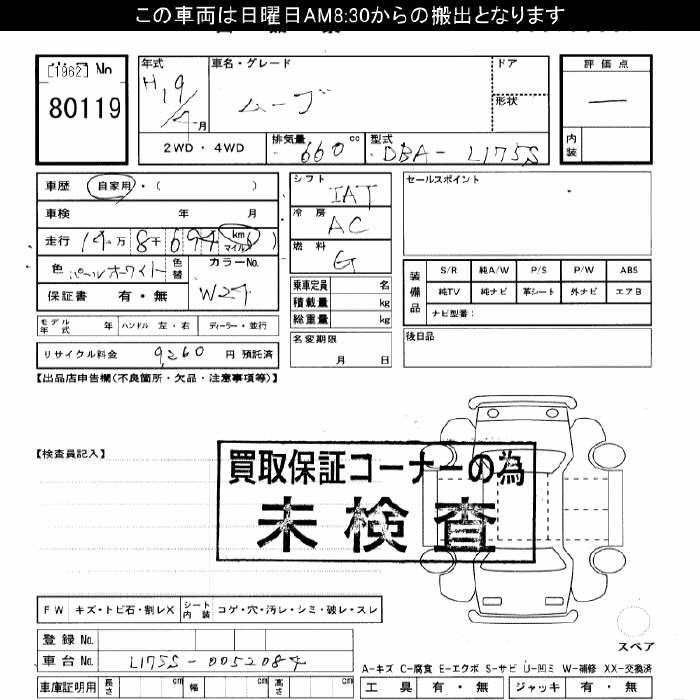 この車両は日曜日AM8:30からの搬出となります
[1962] No
80119
年式 H19/4月
車名・グレード ムーブ
ドア
形状
評価点 —
内装
2WD・4WD
排気量 660 cc
型式 DBA- L175S
車歴 自家用・( )
車検 年 月
走行 14万8千694 km マイル
色 パールホワイト 色替
カラーNo. W24
保証書 有・無
モデル年式 年 ハンドル 左・右 ディーラー・並行
リサイクル料金 9,260 円 預託済
シフト IAT
冷房 AC
燃料 G
乗車定員 名
積載量 kg
総重量 kg
名変期限
月 日
セールスポイント
装備品
S/R 純A/W P/S P/W ABS
純TV 純ナビ 革シート 外ナビ エアB
ナビ型番:
後日品
【出品店申告欄(不良箇所・欠品・注意事項等)】
【検査員記入】
買取保証コーナーの為
未検査
FW キズ・トビ石・割レX シート内装 コゲ・穴・汚レ・シミ・破レ・スレ
登録 No.
車台 No. L175S-0052084
車庫証明用 長さ cm 幅 cm 高さ cm
スペア
A-キズ C-腐食 E-エクボ S-サビ U-凹ミ W-補修 XX-交換済
工具 有・無 ジャッキ 有・無